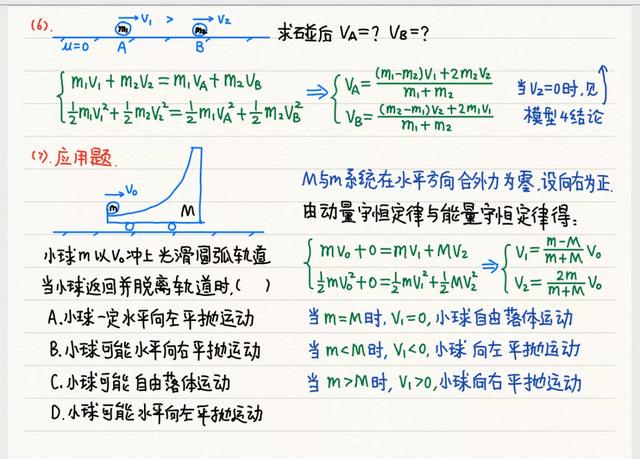 (6).
m₁ →V₁ > m₂ →V₂
μ=0 A B
求碰后 VA=? VB=?
{ m₁V₁+m₂V₂=m₁VA+m₂VB
½m₁V₁²+½m₂V₂²=½m₁VA²+½m₂VB²
⇒ { VA=(m₁-m₂)V₁+2m₂V₂ / m₁+m₂
VB=(m₂-m₁)V₂+2m₁V₁ / m₁+m₂
当V₂=0时,见
模型4结论
(7).应用题.
→V₀
m M
小球m以V₀冲上光滑圆弧轨道
当小球返回并脱离轨道时,( )
A.小球一定水平向左平抛运动
B.小球可能水平向右平抛运动
C.小球可能自由落体运动
D.小球可能水平向左平抛运动
M与m系统在水平方向合外力为零.设向右为正.
由动量守恒定律与能量守恒定律得:
{ mV₀+0=mV₁+MV₂
½mV₀²+0=½mV₁²+½MV₂²
⇒ { V₁=m-M / m+M V₀
V₂=2m / m+M V₀
当m=M时,V₁=0,小球自由落体运动
当m<M时,V₁<0,小球向左平抛运动
当m>M时,V₁>0,小球向右平抛运动